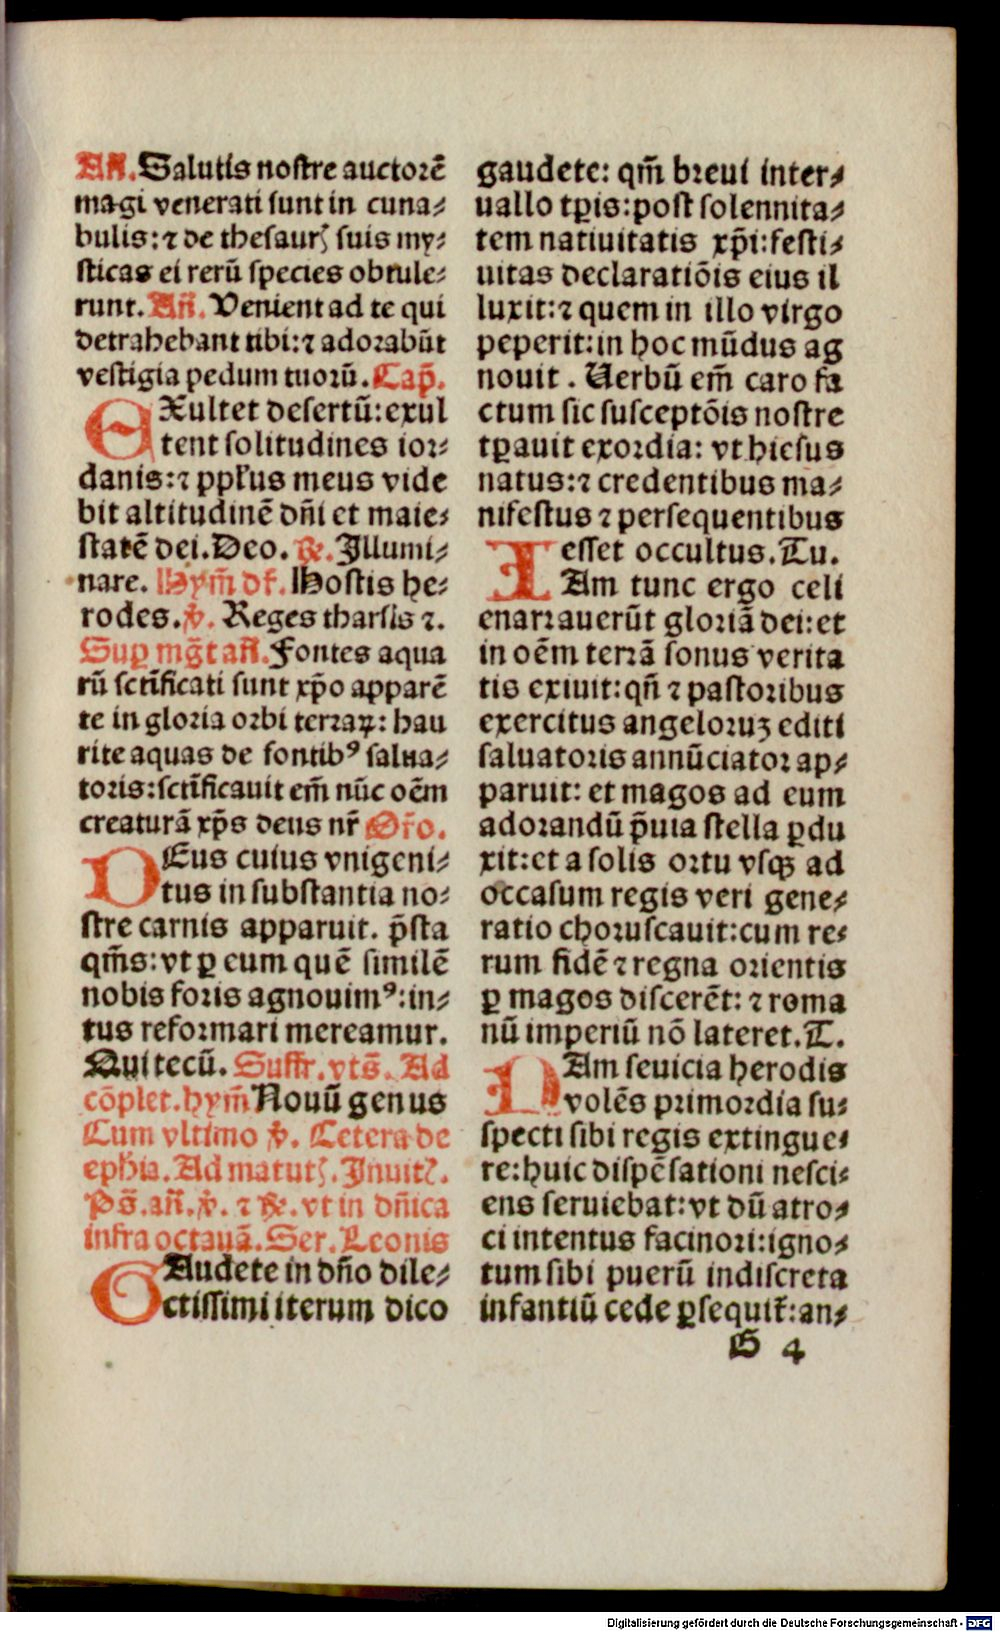 Añ. Salutis nostre auctorē
magi venerati sunt in cuna⸗
bulis: ⁊ de thesaurꝭ suis my⸗
sticas ei rerū species obtule⸗
runt. Añ. Venient ad te qui
detrahebant tibi: ⁊ adorabūt
vestigia pedum tuorū. Cap̄.
EXultet desertū: exul
tent solitudines ior⸗
danis: ⁊ ppl̄us meus vide
bit altitudinē dn̄i et maie⸗
statē dei. Deo. ℟. Illumi⸗
nare. Hym̄ df̄. Hostis he⸗
rodes. ℣. Reges tharsis ⁊.
Suꝑ mḡt añ. Fontes aqua
rū sctīficati sunt xp̄o apparē
te in gloria orbi terraꝝ: hau
rite aquas de fontibꝰ salua⸗
toris: sctīficauit em̄ nūc oēm
creaturā xp̄s deus nr̄ Or̄o.
DEus cuius vnigeni⸗
tus in substantia no⸗
stre carnis apparuit. p̄sta
qm̄s: vt ꝑ eum quē similē
nobis foris agnouimꝰ: in⸗
tus reformari mereamur.
Qui tecū. Suffr. vts̄. Ad
cōplet. hym̄ Nouū genus
Cum vltimo ℣. Cetera de
eph̄ia. Ad matutꝭ. Inuitꝭ.
Ps̄. añ. ℣. ⁊ ℟. vt in dn̄ica
infra octauā. Ser. Leonis
GAudete in dn̄o dile⸗
ctissimi iterum dico
gaudete: qm̄ breui inter⸗
uallo tꝑis: post solennita⸗
tem natiuitatis xp̄i: festi⸗
uitas declaratiōis eius il
luxit: ⁊ quem in illo virgo
peperit: in hoc mūdus ag
nouit. Verbū em̄ caro fa
ctum sic susceptōis nostre
tꝑauit exordia: vt hiesus
natus: ⁊ credentibus ma⸗
nifestus ⁊ persequentibus
esset occultus. Tu.
IAm tunc ergo celi
enarrauerūt gloriā dei: et
in oēm terrā sonus verita
tis exiuit: qn̄ ⁊ pastoribus
exercitus angeloruꝫ editi
saluatoris annūciator ap⸗
paruit: et magos ad eum
adorandū p̄uia stella ꝑdu
xit: et a solis ortu vsqꝫ ad
occasum regis veri gene⸗
ratio choruscauit: cum re⸗
rum fidē ⁊ regna orientis
ꝑ magos discerēt: ⁊ roma
nū imperiū nō lateret. T.
NAm seuicia herodis
volēs primordia su⸗
specti sibi regis extingue⸗
re: huic dispēsationi nesci⸗
ens seruiebat: vt dū atro⸗
ci intentus facinori: igno⸗
tum sibi puerū indiscreta
infantiū cede ꝑsequit᷑: an⸗
G 4
Digitalisierung gefördert durch die Deutsche Forschungsgemeinschaft - DFG